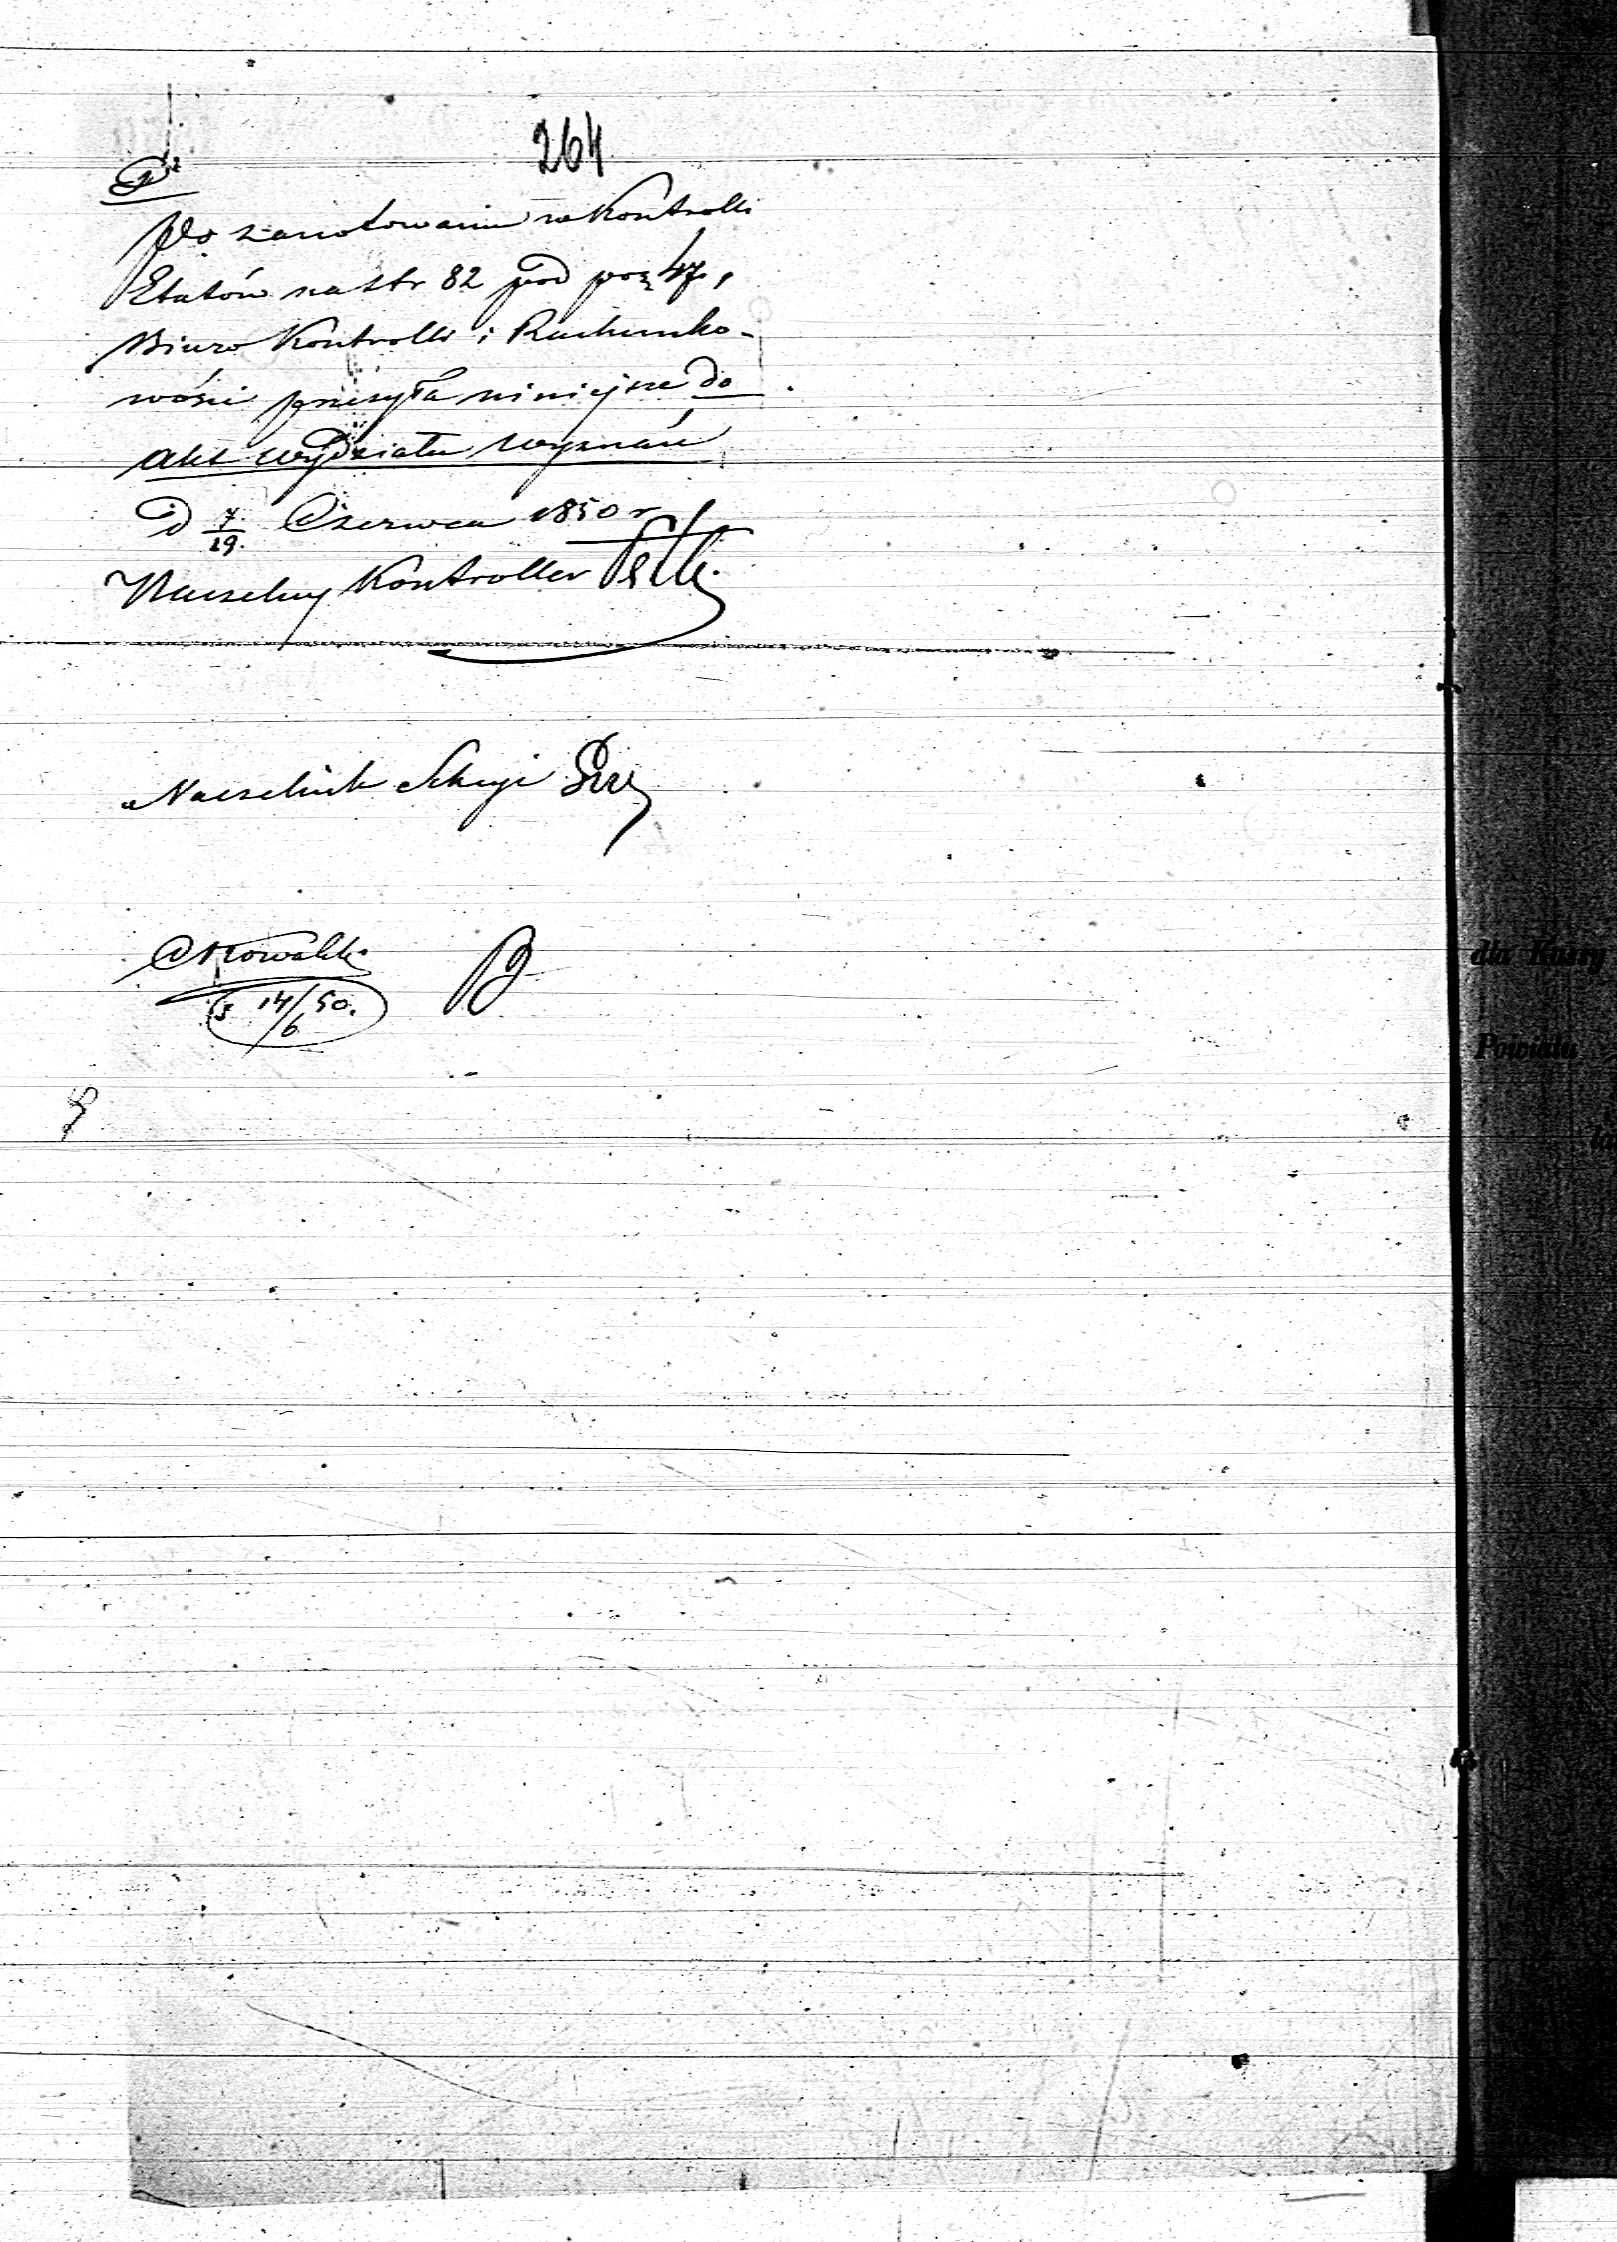 264
Po zanotowaniu w Kontrolli
Etatów na str 82 pod poz 47,
Biuro Kontrolli i Rachunko-
wości przesyła niniejsze do
akt Wydziału Wyznań
D 7/19. Czerwca 1850 r
Naczelny Kontroller
Naczelnik Sekcyi
Nowalski
14/6 50.
dla Kassy
Powiatu